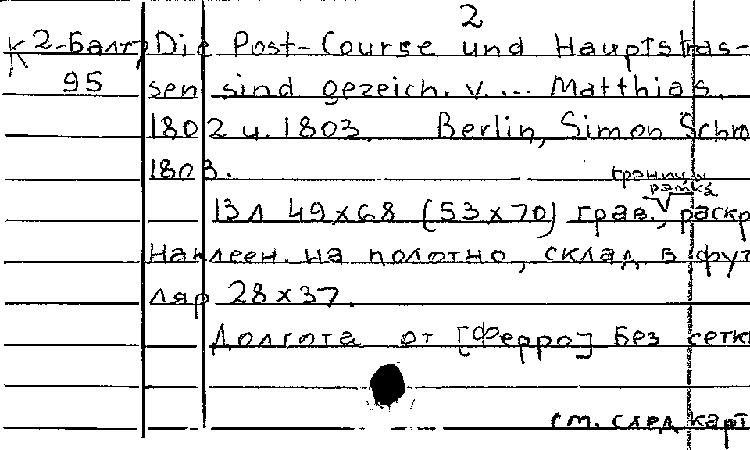 2
К 2-Балт, Die Post-Course und Hauptstras-
95 sen sind gezeich. v. ... Matthias.
1802 u. 1803. Berlin, Simon Schro
1803.
границы
рамка
13 л 49x68 (53x70) грав., раскр
Наклеен. на полотно, склад. в фут
ляр 28x37.
Долгота от [Ферро] без сетк
см. след карт